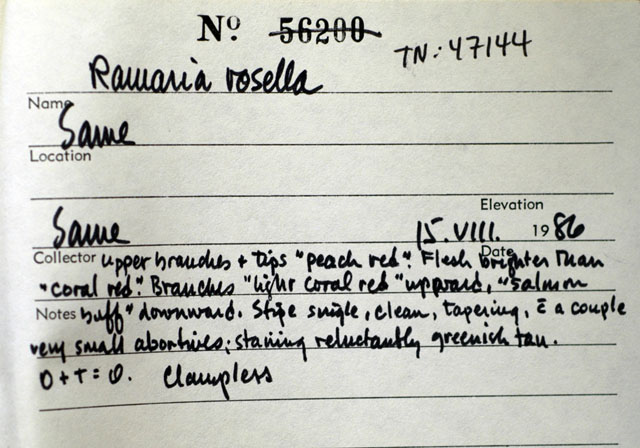 Nº 56200
TN: 47144
Ramaria rosella
Name
Same
Location
Elevation
Same 15.VIII. 1986
Collector Date
upper branches + tips "peach red". Flesh brighter than
"coral red". Branches "light coral red" upward, "salmon
Notes buff" downward. Stipe single, clean, tapering, c̄ a couple
very small abortives; staining reluctantly greenish tan.
O + T = O. Clampless